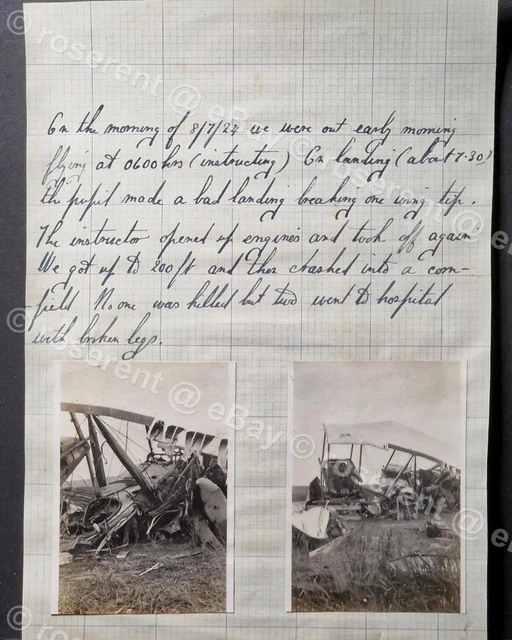 On the morning of 8/7/24 we were out early morning
flying at 0600 hrs (instructing) On landing (about 7.30)
the pupil made a bad landing breaking one wing tip.
The instructor opened up engines and took off again
We got up to 200 ft and then crashed into a corn-
field No one was killed but two went to hospital
with broken legs.
© roserent @ eBay